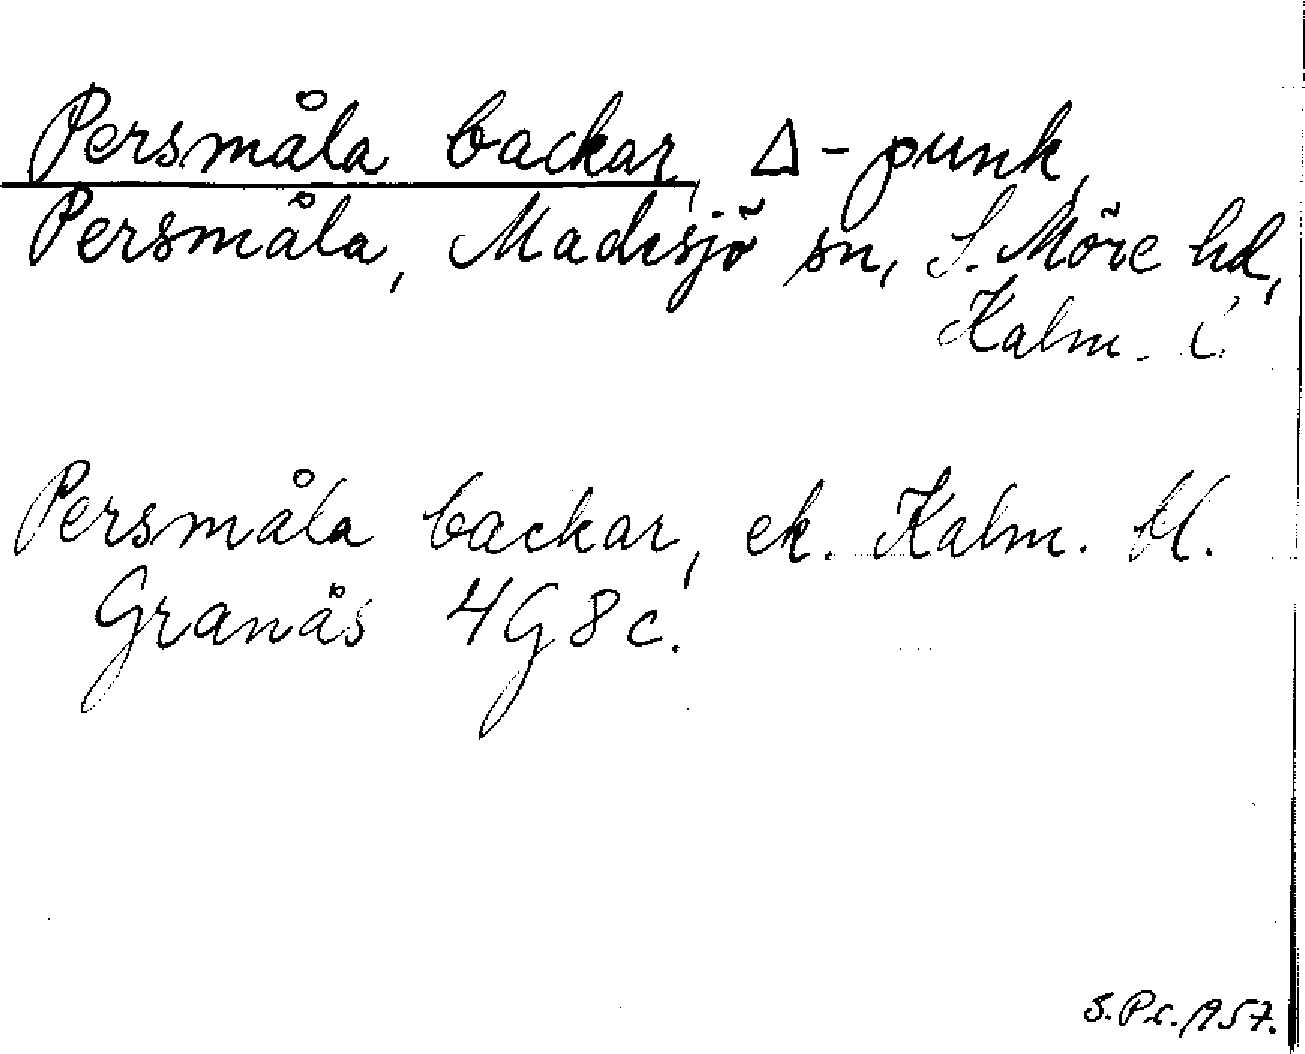 Persmåla backar, Δ-punk,
Persmåla, Madesjö sn, S. Möre hd,
Kalm. l.
Persmåla backar, ek. Kalm. bl.
Granås 4G8c.
S.Pr.1957.